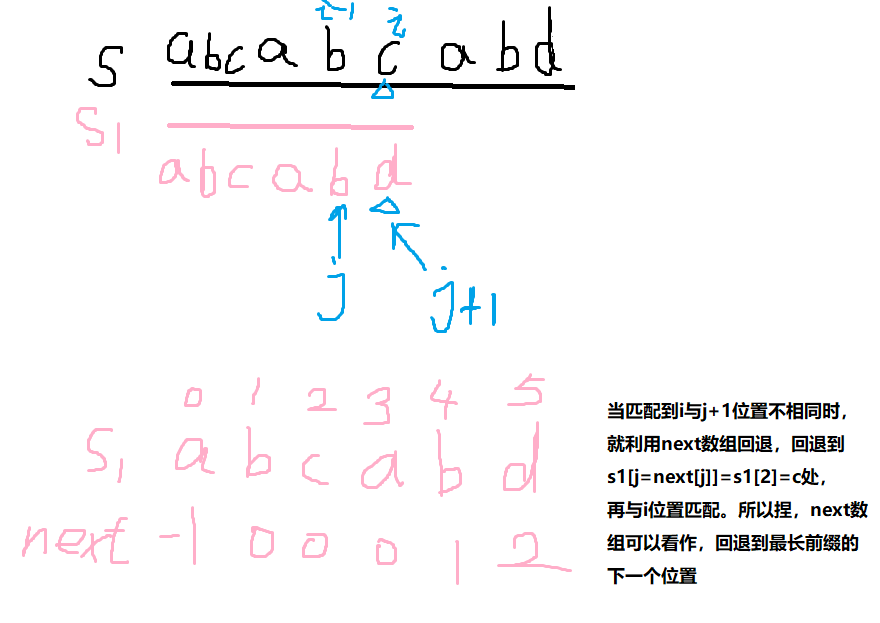 i-1 i
S abcabcabd
S1
abcabd
j
j+1
0 1 2 3 4 5
S1 a b c a b d
next -1 0 0 0 1 2
当匹配到i与j+1位置不相同时，
就利用next数组回退，回退到
s1[j=next[j]]=s1[2]=c处，
再与i位置匹配。所以捏，next数
组可以看作，回退到最长前缀的
下一个位置